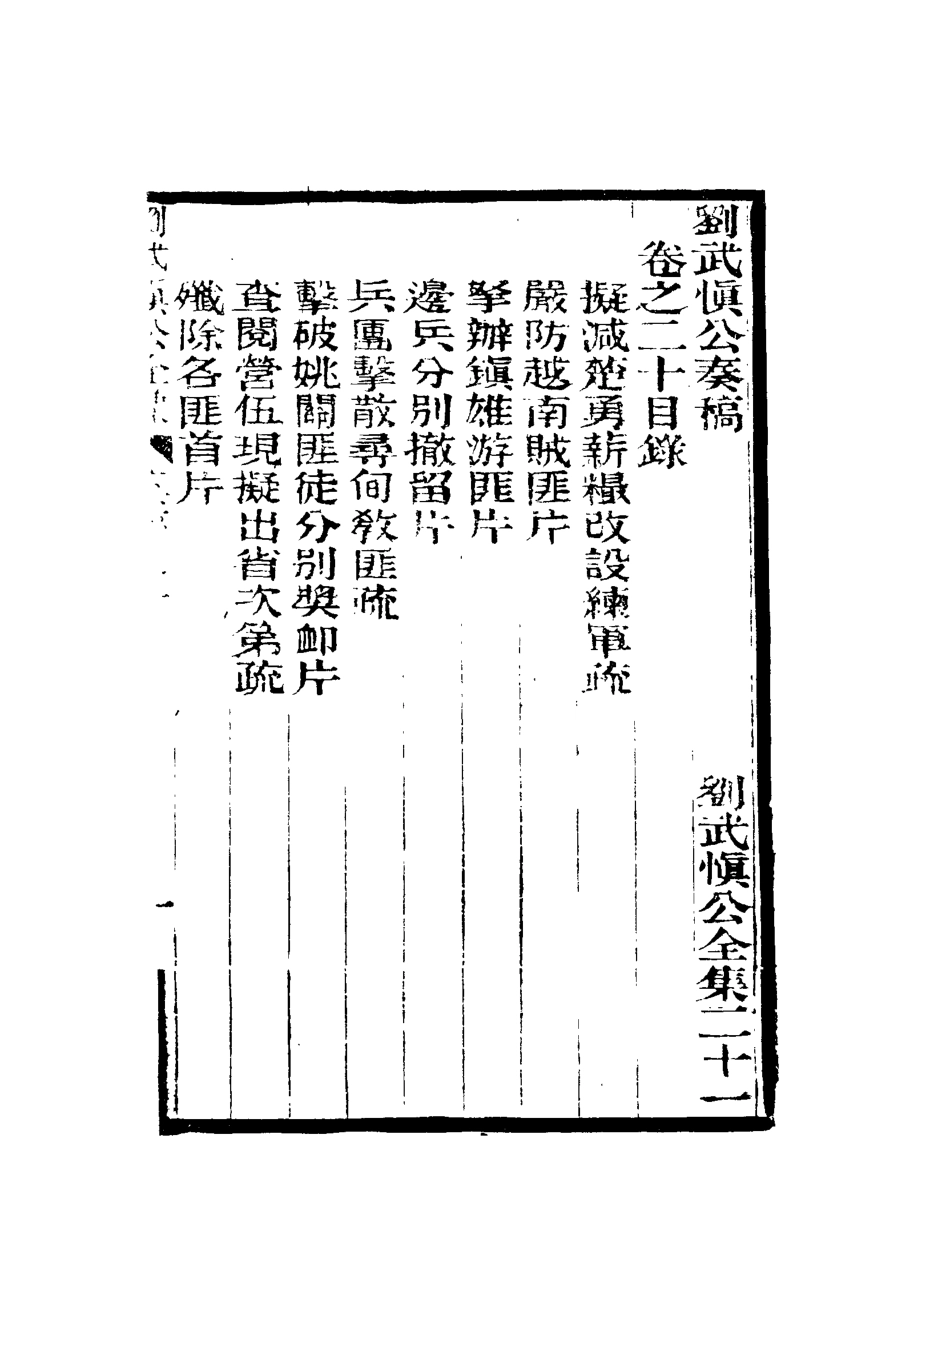 劉武愼公奏稿 劉武愼公全集二十一
卷之二十目錄
擬減楚勇薪糧改設練軍疏
嚴防越南賊匪片
拏辦鎭雄游匪片
邊兵分別撤留片
兵團擊散尋甸教匪疏
擊破姚關匪徒分別獎卹片
查閱營伍現擬出省次第疏
殲除各匪首片